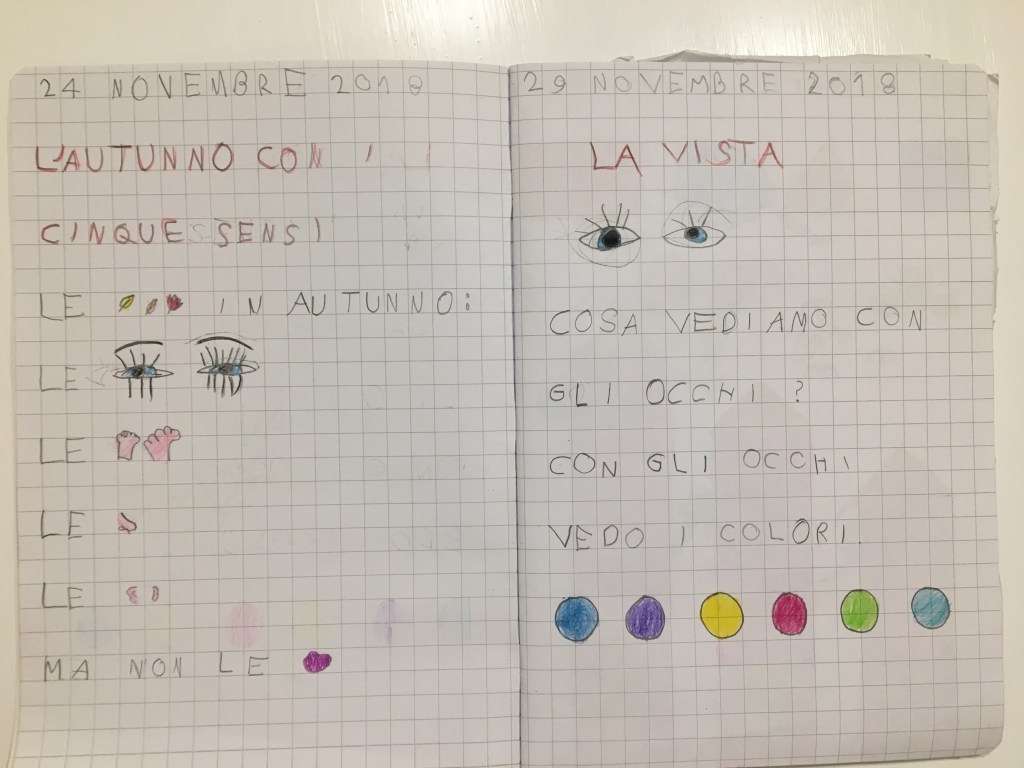 24 NOVEMBRE 2018
L'AUTUNNO CON I
CINQUE SENSI
LE IN AUTUNNO:
LE
LE
LE
LE
MA NON LE
29 NOVEMBRE 2018
LA VISTA
COSA VEDIAMO CON
GLI OCCHI ?
CON GLI OCCHI
VEDO I COLORI.